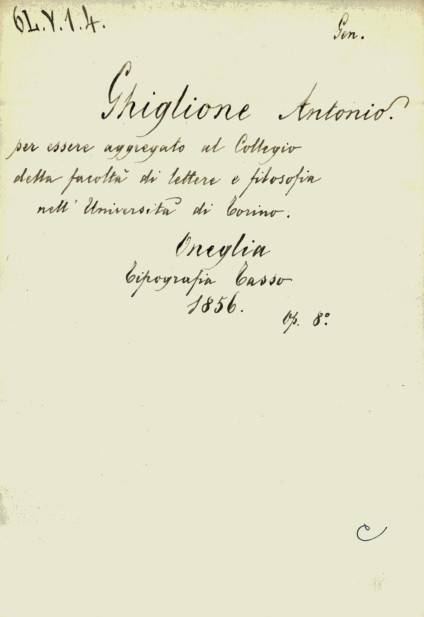 6L.V.1.4.
Gen.
Ghiglione Antonio.
per essere aggregato al Collegio
della facoltà di lettere e filosofia
nell' Università di Torino.
Oneglia
Tipografia Tasso
1856.
Op. 8º.
C